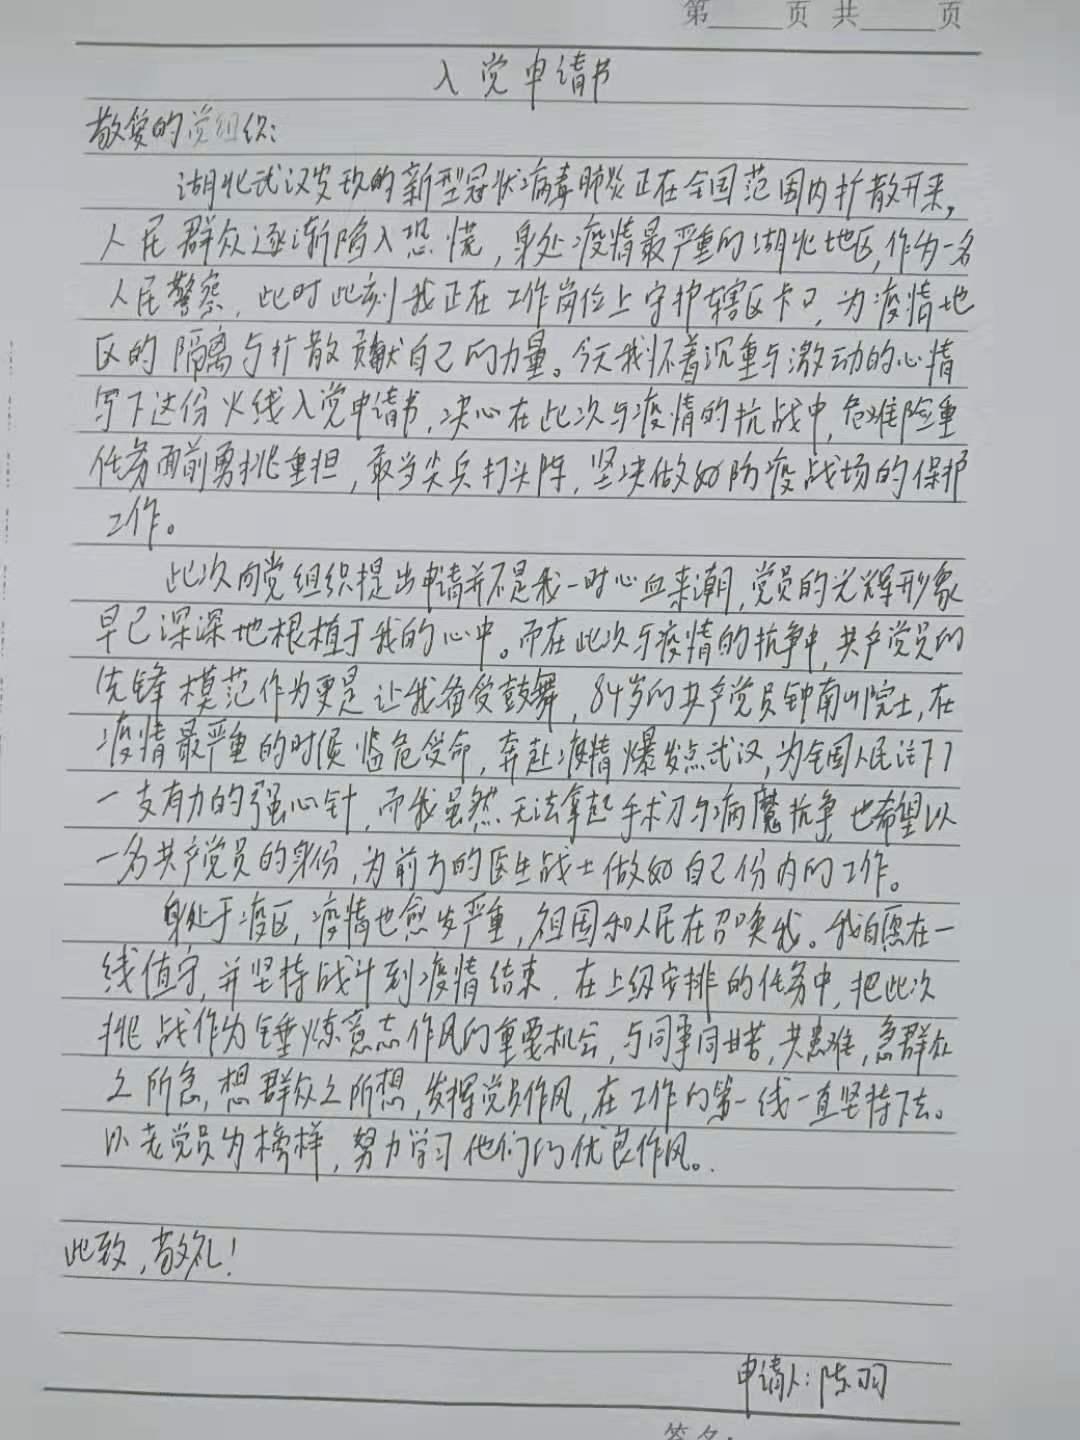 第 页 共 页
入党申请书
敬爱的党组织:
湖北武汉发现的新型冠状病毒肺炎正在全国范围内扩散开来,
人民群众逐渐陷入恐慌,身处疫情最严重的湖北地区,作为一名
人民警察,此时此刻我正在工作岗位上守护辖区卡口,为疫情地
区的隔离与扩散贡献自己的力量。今天我怀着沉重与激动的心情
写下这份火线入党申请书,决心在此次与疫情的抗战中,危难险重
任务面前勇挑重担,敢当尖兵打头阵,坚决做好防疫战场的保护
工作。
此次向党组织提出申请并不是我一时心血来潮,党员的光辉形象
早已深深地根植于我的心中。而在此次与疫情的抗争中,共产党员的
先锋模范作为更是让我备受鼓舞,84岁的共产党员钟南山院士,在
疫情最严重的时候临危受命,奔赴疫情爆发点武汉,为全国人民注下了
一支有力的强心针,而我虽然无法拿起手术刀与病魔抗争,也希望以
一名共产党员的身份,为前方的医生战士做好自己份内的工作。
身处于疫区,疫情也愈发严重,祖国和人民在召唤我。我自愿在一
线值守,并坚持战斗到疫情结束.在上级安排的任务中,把此次
挑战作为锤炼意志作风的重要机会,与同事同甘苦,共患难,急群众
之所急,想群众之所想,发挥党员作风,在工作的第一线一直坚持下去。
以老党员为榜样,努力学习他们的优良作风。
此致,敬礼!
申请人:陈羽
签名: